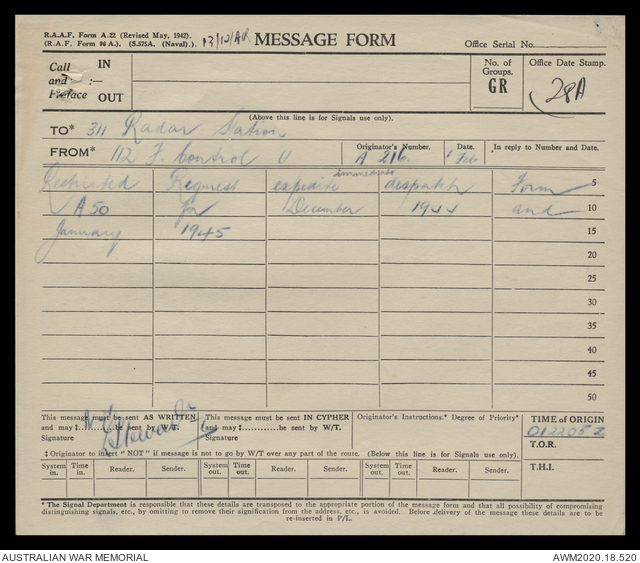 R.A.A.F. Form A.22 (Revised May, 1942).
(R.A.F. Form 96 A.). (S.575A. (Naval).).
MESSAGE FORM
Office Serial No.
Call IN
and :—
Preface OUT
No. of Groups.
GR
Office Date Stamp.
28A
(Above this line is for Signals use only).
TO* 311 Radar Station
FROM* 112 F. Control U
Originator's Number.
A 216.
Date
1 Feb
In reply to Number and Date.
immediate
Restricted Request expedite despatch Form 5
A 50 for December 1944 and 10
January 1945 15
20
25
30
35
40
45
50
This message must be sent AS WRITTEN
and may ‡ be sent by W/T.
Signature
This message must be sent IN CYPHER
and may ‡ be sent by W/T.
Signature
Originator's Instructions.* Degree of Priority*
TIME OF ORIGIN
012205Z
T.O.R.
T.H.I.
‡ Originator to insert "NOT" if message is not to go by W/T over any part of the route. (Below this line is for Signals use only).
System in. Time in. Reader. Sender. System out. Time out. Reader. Sender. System out. Time out. Reader. Sender.
* The Signal Department is responsible that these details are transposed to the appropriate portion of the message form and that all possibility of compromising
distinguishing signals, etc., by omitting to remove their signification from the address, etc., is avoided. Before delivery of the message these details are to be
re-inserted in P/L.
AUSTRALIAN WAR MEMORIAL
AWM2020.18.520